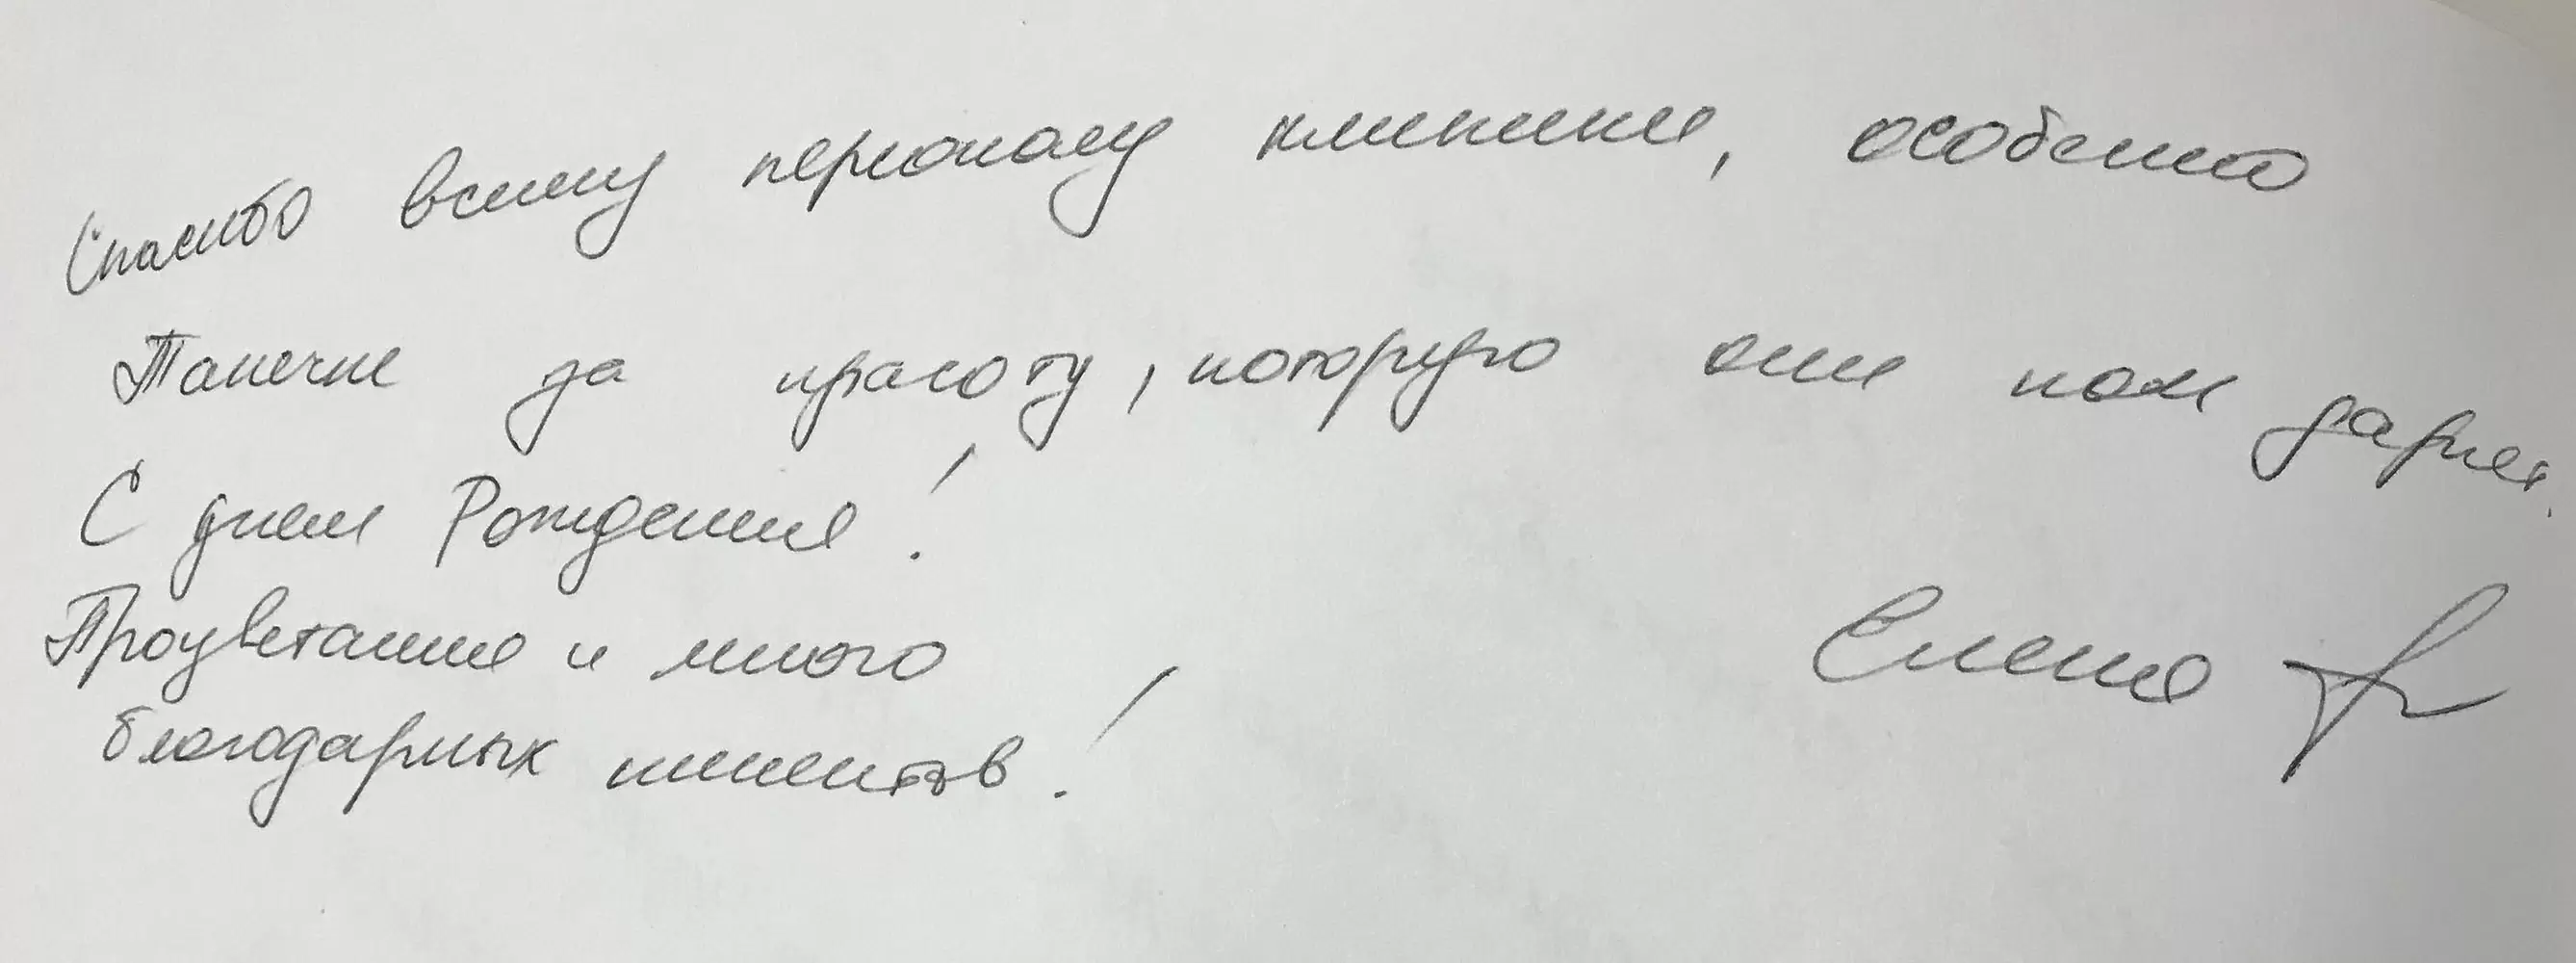 Спасибо всему персоналу клиники, особенно
Танечке за красоту, которую они нам дарят.
С днем Рождения!
Процветания и много
благодарных клиентов!
Елена